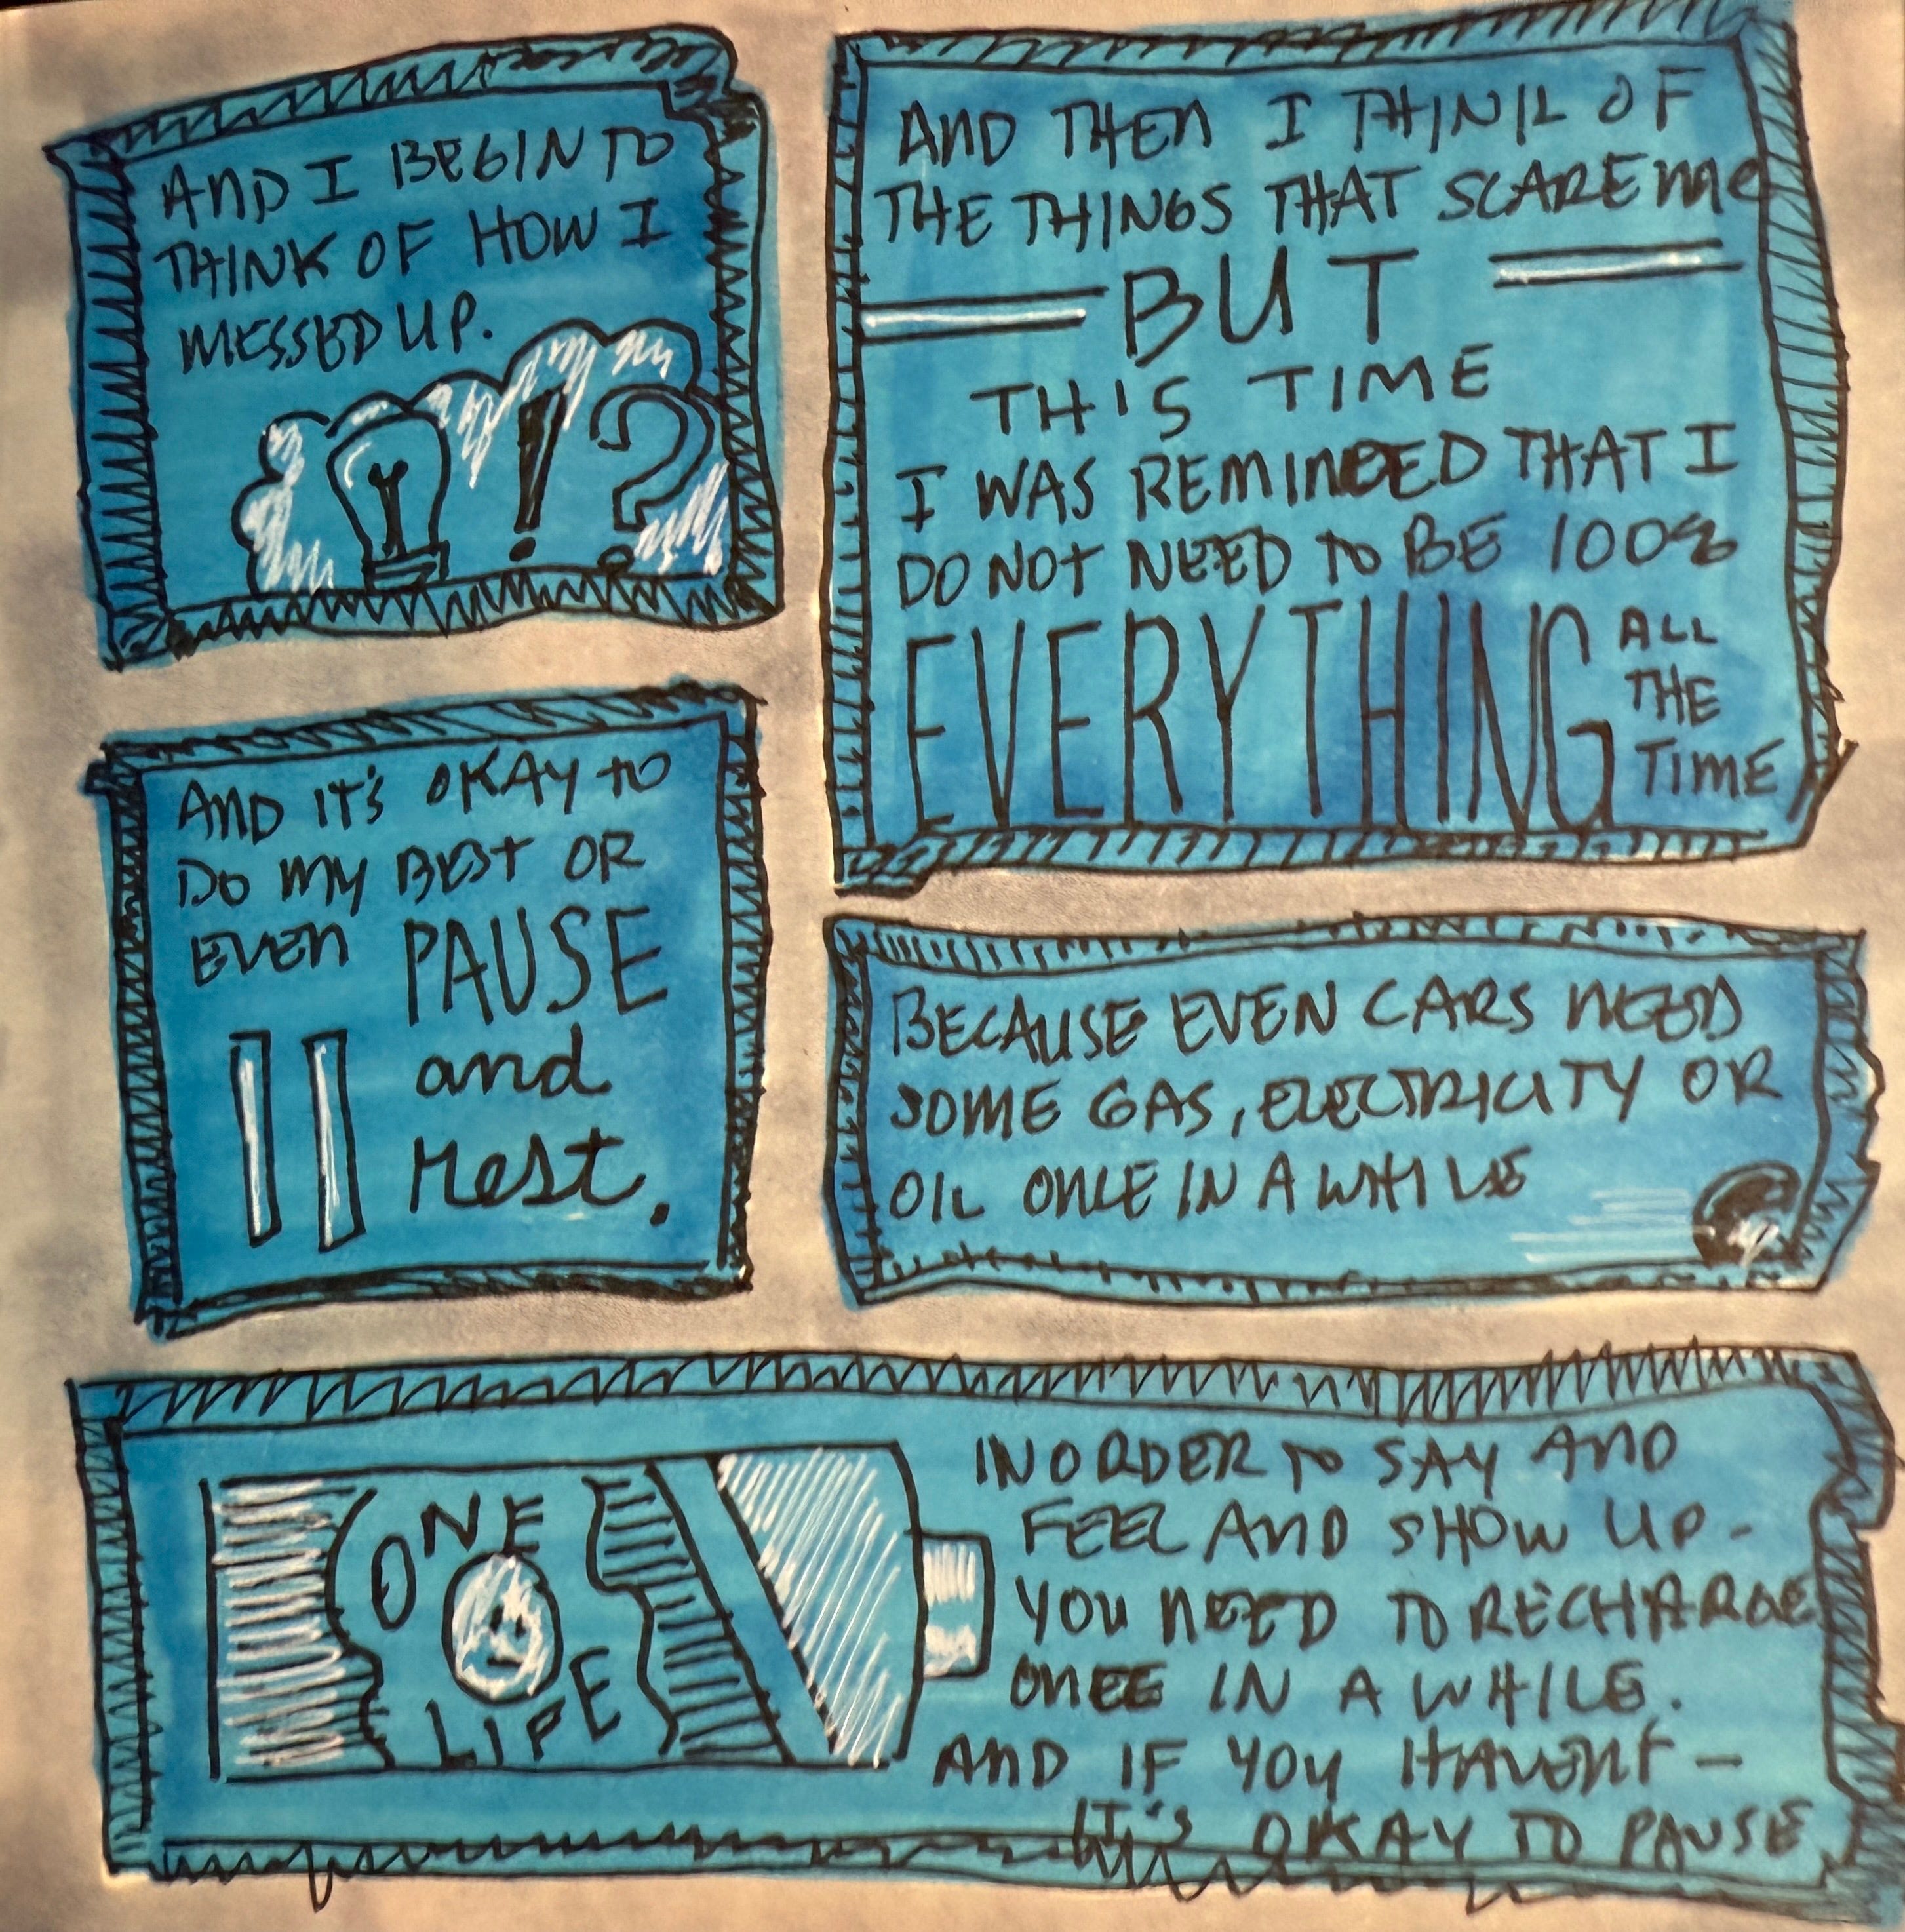 AND I BEGIN TO
THINK OF HOW I
MESSED UP.
! ?
AND THEN I THINK OF
THE THINGS THAT SCARE me
BUT
THIS TIME
I WAS REMINDED THAT I
DO NOT NEED TO BE 100%
EVERYTHING ALL
THE
TIME
AND IT'S OKAY TO
DO MY BEST OR
EVEN PAUSE
and
rest.
BECAUSE EVEN CARS NEED
SOME GAS, ELECTRICITY OR
OIL ONCE IN A WHILE
ONE
LIFE
IN ORDER TO SAY AND
FEEL AND SHOW UP -
YOU NEED TO RECHARGE
ONCE IN A WHILE.
AND IF YOU HAVENT —
IT'S OKAY TO PAUSE